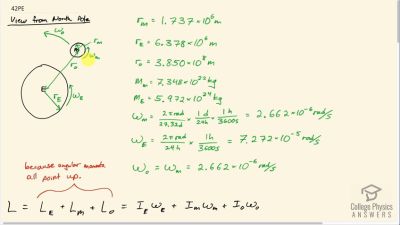 42PE
View from North Pole
ω₀
r_m
M
ω_m
r₀
E
r_E
ω_E
r_m = 1.737 × 10⁶ m
r_E = 6.378 × 10⁶ m
r₀ = 3.850 × 10⁸ m
M_m = 7.348 × 10²² kg
M_E = 5.972 × 10²⁴ kg
ω_m = 2π rad / 27.32 d × 1 d / 24 h × 1 h / 3600 s = 2.662 × 10⁻⁶ rad/s
ω_E = 2π rad / 24 h × 1 h / 3600 s = 7.272 × 10⁻⁵ rad/s
ω₀ = ω_m = 2.662 × 10⁻⁶ rad/s
because angular momenta
all point up.
L = L_E + L_m + L₀ = I_E ω_E + I_m ω_m + I₀ ω₀
College Physics
ANSWERS